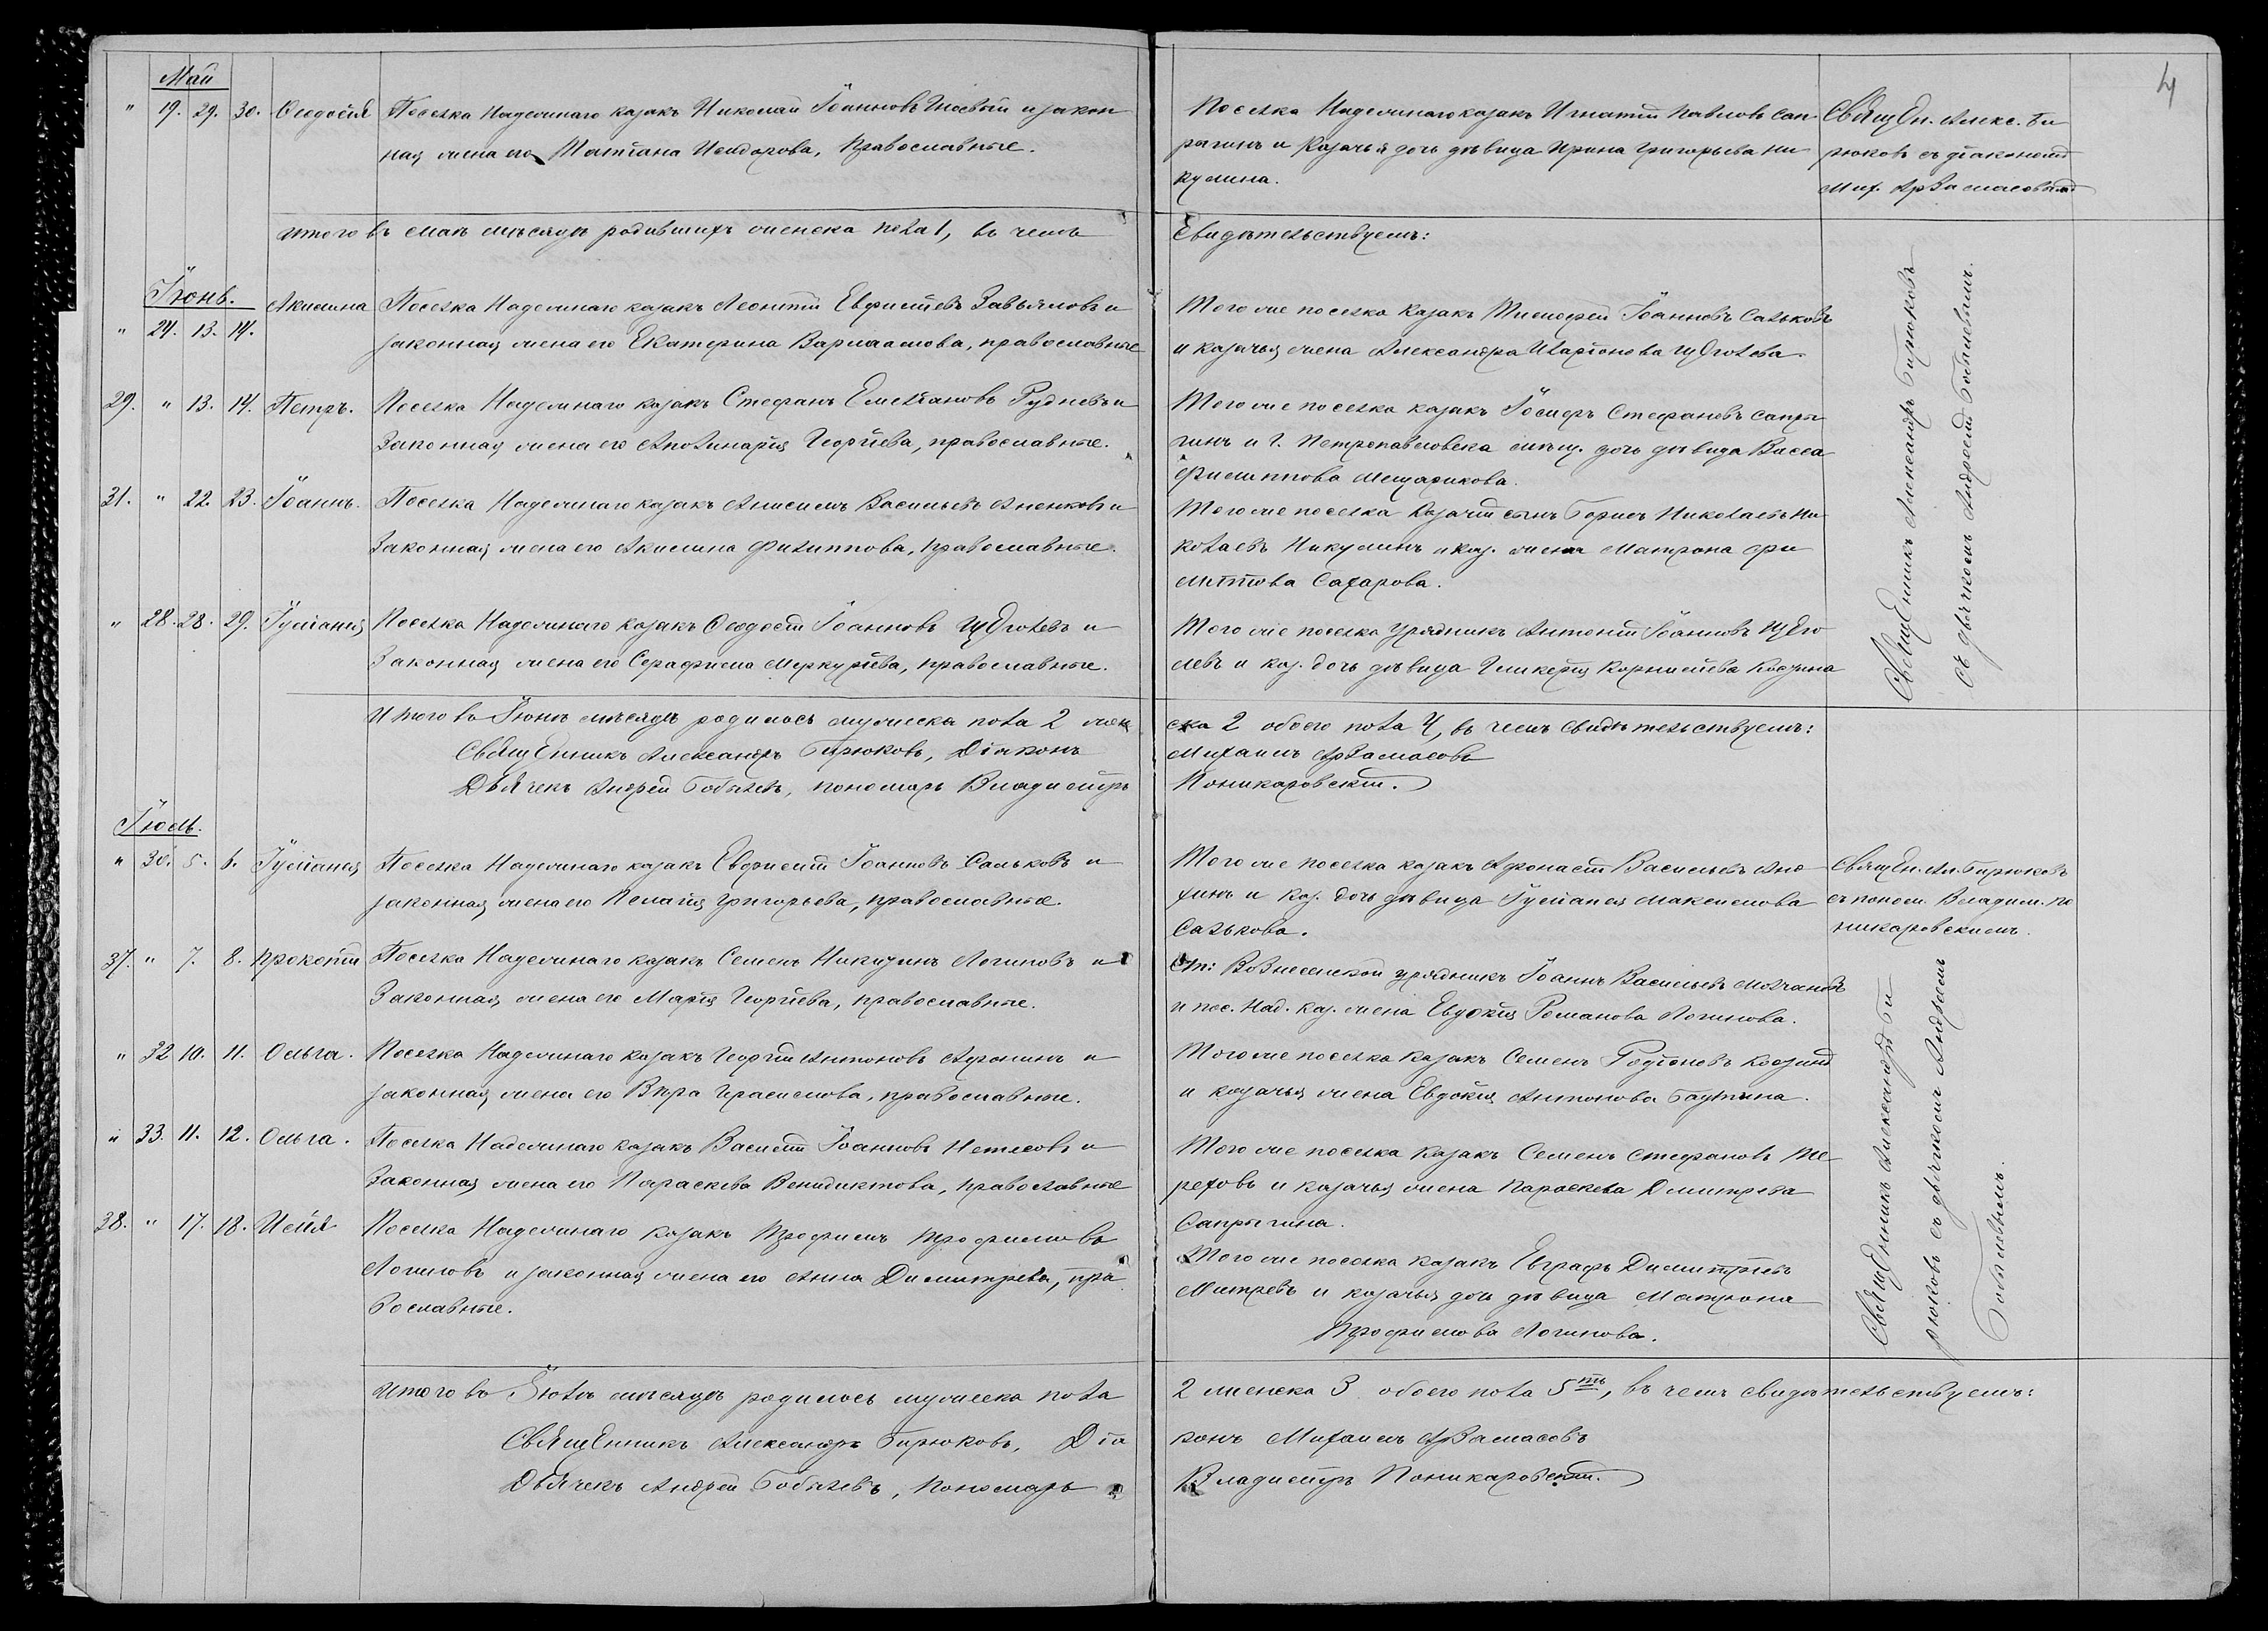 4
Май
" 19. 29. 30. Ѳеодосія Поселка Надежинаго казакъ Николай Іоанновъ и закон
ная жена его Татіана Исидорова, православные.
Поселка Надежинаго казакъ Игнатій Павловъ Сап
рыгинъ и казачья дочь дѣвица Ирина Григорьева Ни
кулина.
СвящЕн. Алекс. Би
рюковъ съ діакономъ
Мих. Арзамасовымъ
Итого въ маѣ мѣсяцѣ родившихъ женска пола 1, въ чемъ
Свидѣтельствуемъ:
Іюнь.
" 24. 13. 14. Акилина Поселка Надежинаго казакъ Леонтій Евфиміевъ Завьяловъ и
законная жена его Екатерина Варлаамова, православные
Того же поселка казакъ Тимофей Іоанновъ Сальковъ
и казачья жена Александра Иларіонова Щеголева.
29. " 13. 14. Петръ. Поселка Надежинаго казакъ Стефанъ Емеліановъ Рудневъ и
Законная жена его Аполинарія Георгіева, православные.
Того же поселка казакъ Іосифъ Стефановъ Сапры
гинъ и г. Петропавловска мѣщ. дочь дѣвица Васса
Филиппова Мещарикова.
31. " 22. 23. Іоаннъ. Поселка Надежинаго казакъ Анисимъ Васильевъ Аненковъ и
Законная жена его Акилина Филиппова, православные.
Того же поселка Казачій сынъ Борисъ Николаевъ Ни
колаевъ Никулинъ и каз. жена Матрона Фи
липпова Сахарова.
" 28. 28. 29. Іуліанія Поселка Надежинаго казакъ Ѳеодосій Іоанновъ Щеголевъ и
Законная жена его Серафима Меркуріева, православные.
Того же поселка урядникъ Антоній Іоанновъ Щего
левъ и каз. дочь дѣвица Гликерія Корниліева Козина
СвящЕнникъ Александръ Бирюковъ
съ дьячкомъ Андреемъ Бобылевымъ.
Итого въ Іюнѣ мѣсяцѣ родилось мужеска пола 2 жен
ска 2 обоего пола 4, въ чемъ свидѣтельствуемъ:
СвящЕнникъ Александръ Бирюковъ, Діаконъ
Михаилъ Арзамасовъ
Дьячекъ Андрей Бобылевъ, пономарь Владиміръ
Поникаровскій.
Іюль.
" 30. 5. 6. Іуліанія Поселка Надежинаго казакъ Евфимій Іоанновъ Сальковъ и
законная жена его Пелагія Григорьева, православные.
Того же поселка казакъ Афонасій Васильевъ Ано
хинъ и каз. дочь дѣвица Іуліанія Максимова
Салькова.
СвящЕн. Ал. Бирюковъ
съ поном. Владим. По
никаровскимъ.
37. " 7. 8. Прокопій Поселка Надежинаго казакъ Семенъ Никитинъ Логиновъ и
Законная жена его Марія Георгіева, православные.
Ст: Вознесенской урядникъ Іоаннъ Васильевъ Молчановъ
и пос. Над. каз. жена Евдокія Романова Логинова.
" 32 10. 11. Ольга. Поселка Надежинаго казакъ Георгій Антоновъ Афонинъ и
законная жена его Вѣра Герасимова, православные.
Того же поселка казакъ Семенъ Родіоновъ Козинъ
и казачья жена Евдокія Антонова Баутина.
" 33. 11. 12. Ольга. Поселка Надежинаго казакъ Василій Іоанновъ Нетесовъ и
Законная жена его Параскева Венидиктова, православные
Того же поселка Казакъ Семенъ Стефановъ Те
реховъ и казачья жена Параскева Дмитрева
Сапрыгина.
38. " 17. 18. Илія Поселка Надежинаго казакъ Трофимъ Трофимовъ
Логиновъ и законная жена его Анна Димитрева, пра
вославные.
Того же поселка казакъ Евграфъ Димитріевъ
Митревъ и казачья дочь дѣвица Матрона
Трофимова Логинова.
СвящЕнникъ Александръ Би
рюковъ съ дьячкомъ Андреемъ
Бобылевымъ.
Итого въ Іюлѣ мѣсяцѣ родилось мужеска пола
2 женска 3 обоего пола 5ть, въ чемъ свидѣтельствуемъ:
СвящЕнникъ Александръ Бирюковъ, Діа
конъ Михаилъ Арзамасовъ
Дьячекъ Андрей Бобылевъ, Пономарь
Владиміръ Поникаровскій.